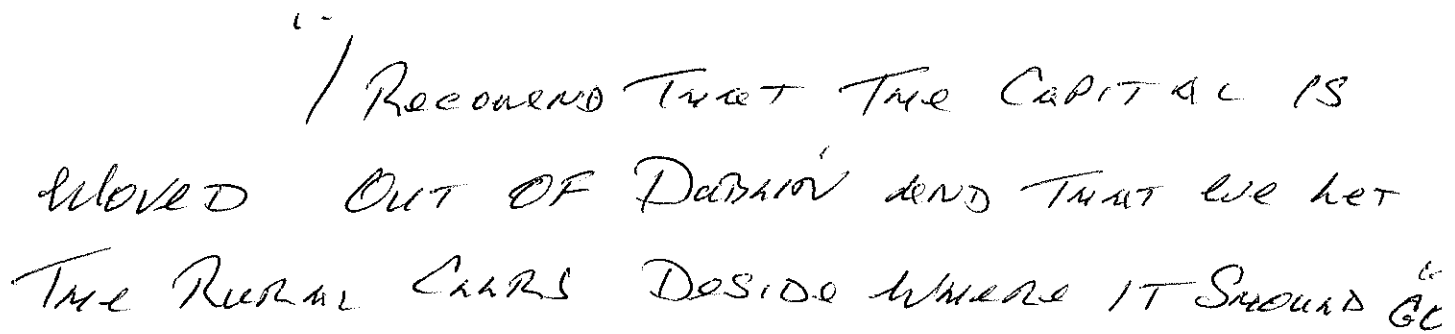 "I Recomend That The Capital is
Moved Out OF Dublin and That we Let
The Rural Deside Where IT Should Go"